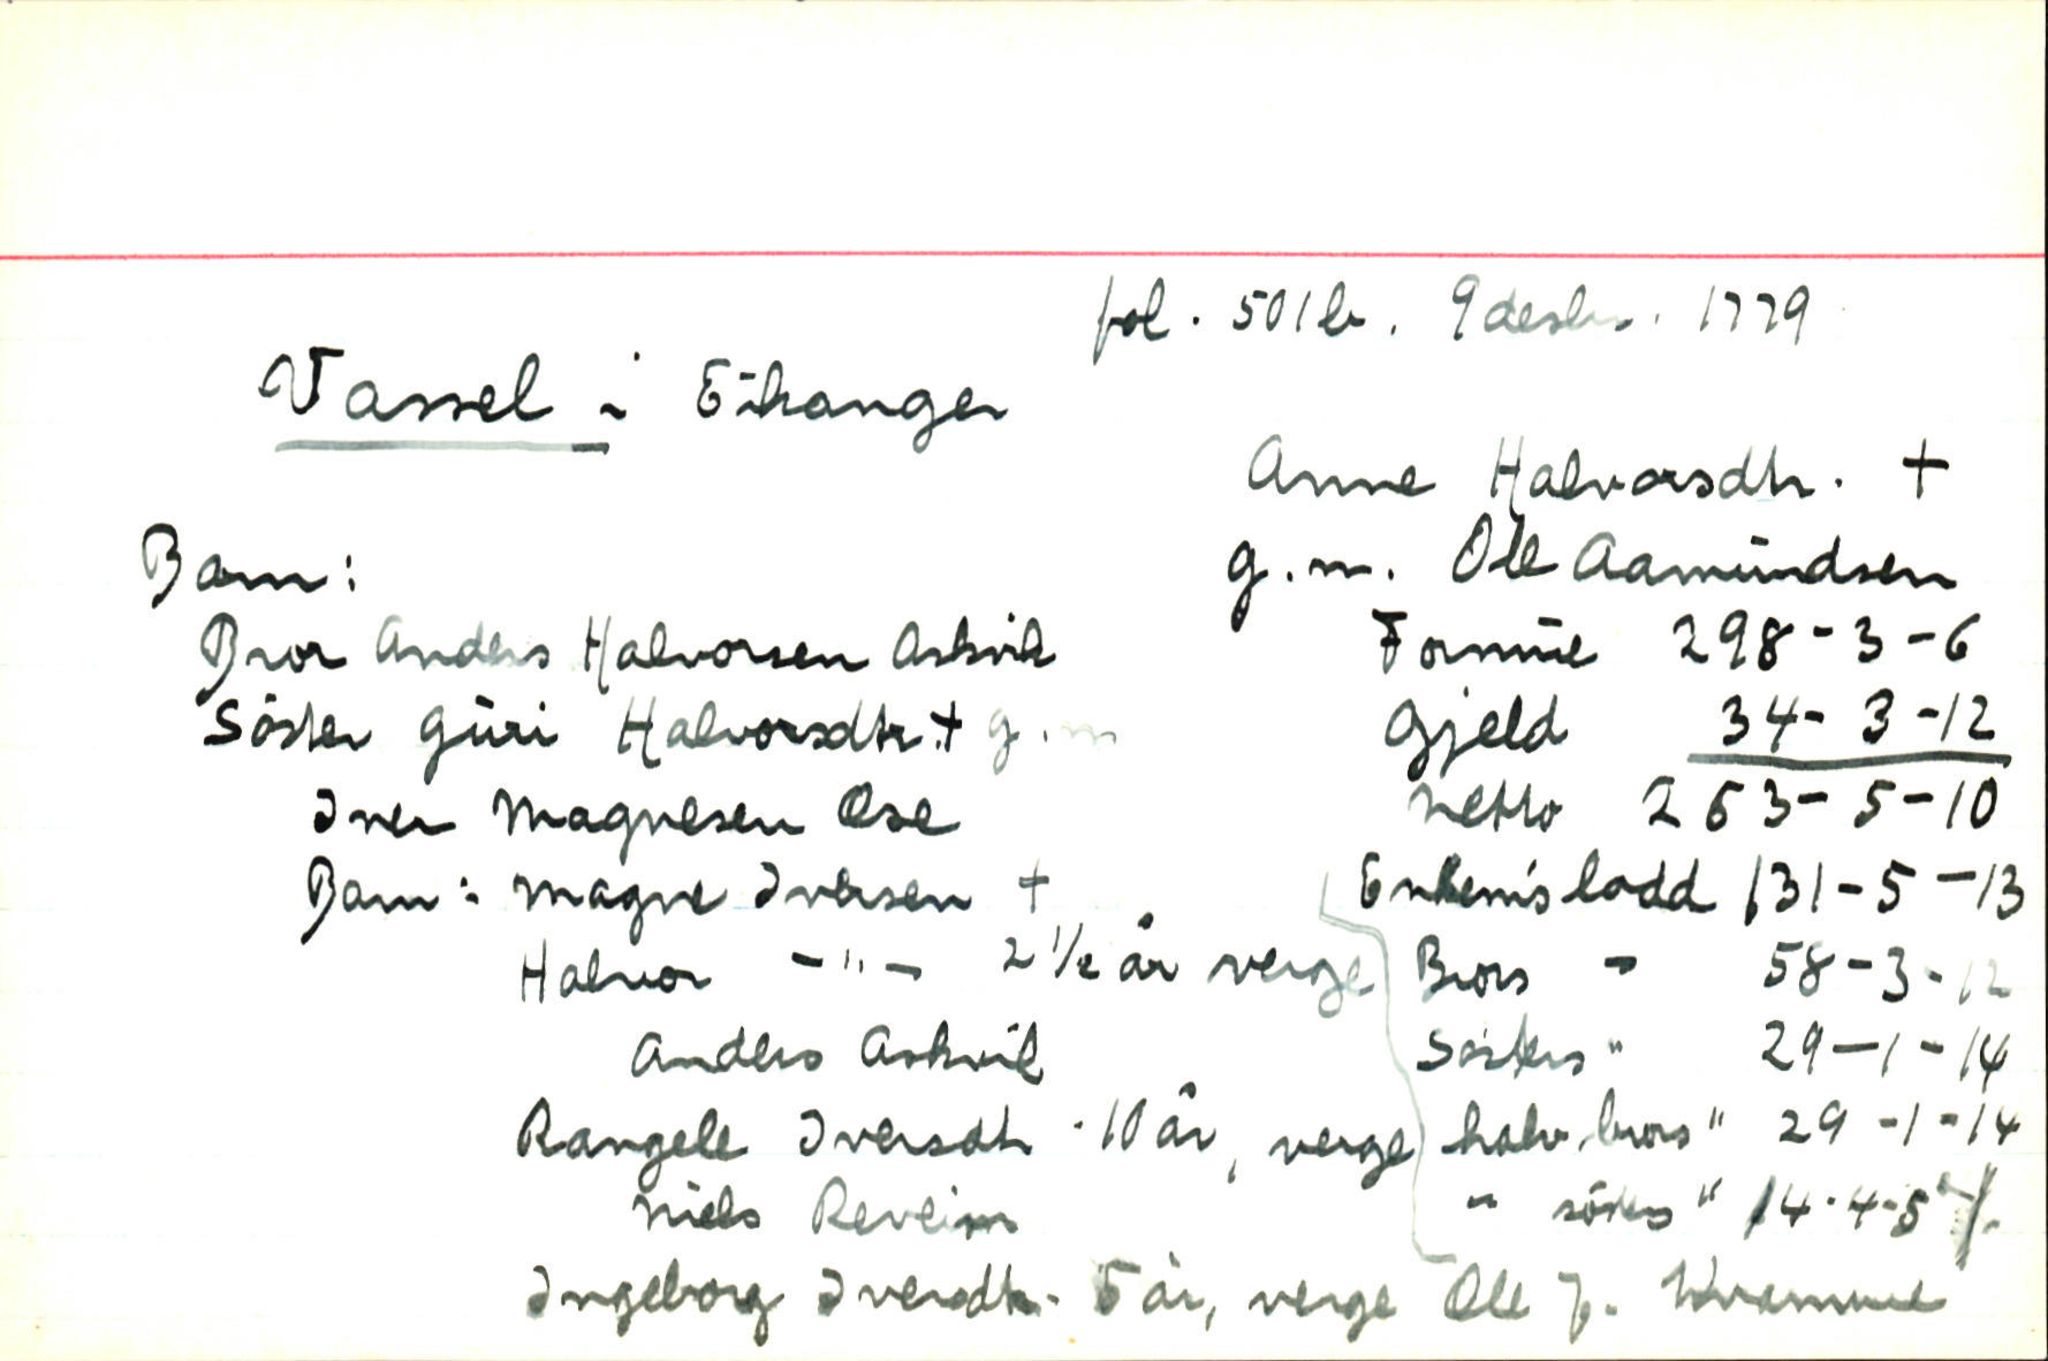 fol. 501b. 9 desbr. 1779
Vassel i Eikanger
Anne Halvorsdtr. +
g.m. Ole Aamundsen
Barn:
Bror Anders Halvorsen Askvik
Söster Guri Halvorsdtr. + g.m
Iver Magnesen Ose
Barn: Magne Iversen +
Halvor -"- 2 1/2 år verge
Anders Askvik
Rangele Iversdtr. 10 år, verge
Niels Reveim
Ingeborg Iversdtr. 5 år, verge Ole J. Kvamme
Formue 298-3-6
Gjeld 34-3-12
Netto 263-5-10
Enkem's lodd 131-5-13
Brors - 58-3-12
Sösters " 29-1-14
halv.brors " 29-1-14
" sösters " 14-4-5